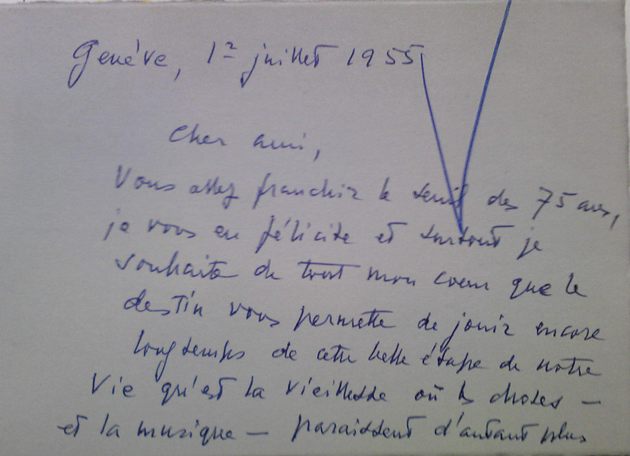 Genève, 1er juillet 1955
Cher ami,
Vous allez franchir le seuil des 75 ans,
je vous en félicite et surtout je
souhaite de tout mon coeur que le
destin vous permette de jouir encore
longtemps de cette belle étape de notre
vie qu'est la vieillesse où les choses —
et la musique — paraissent d'autant plus